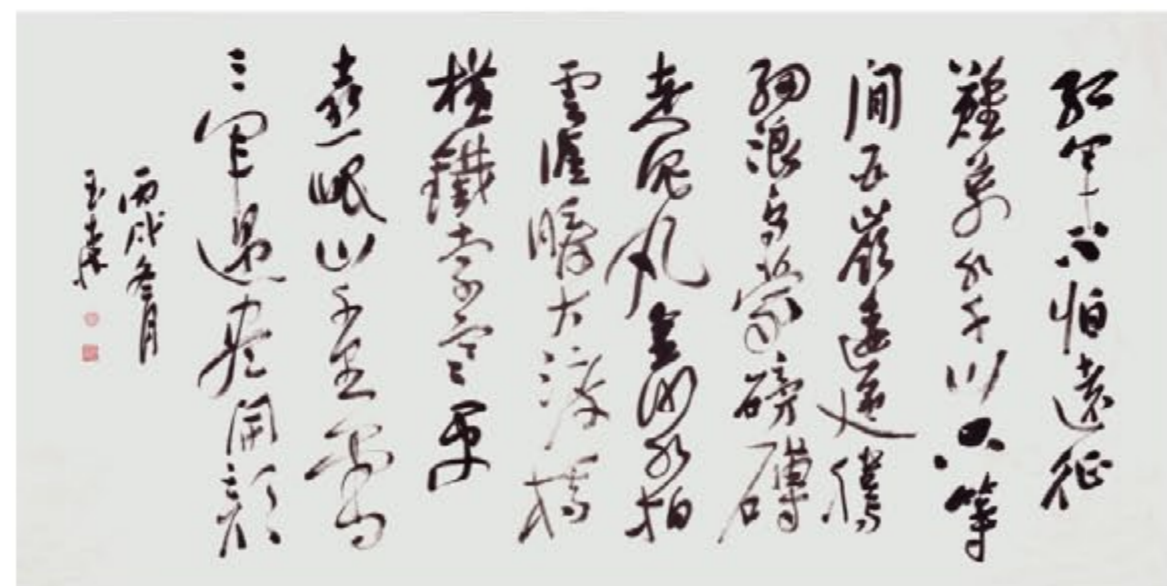 紅軍不怕遠征
難萬水千山只等
閒五嶺逶迤騰
細浪烏蒙磅礴
走泥丸金沙水拍
雲崖暖大渡橋
橫鐵索寒更
喜岷山千里雪
三軍過盡開顏
丙戌冬月
玉